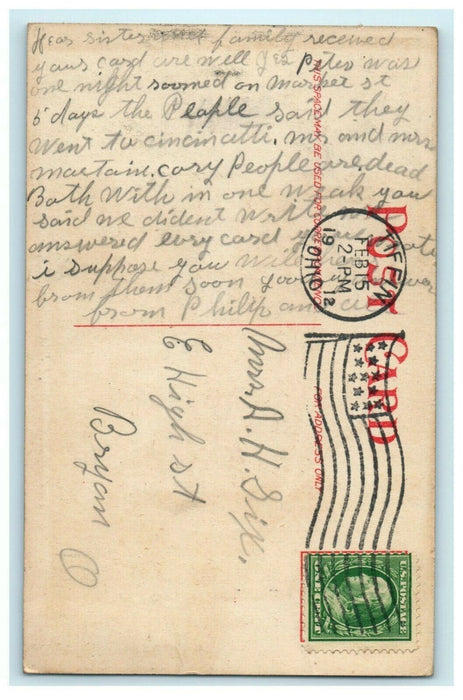 Dear sister and family received
yours card are well yes Peter was
one night roomed on market st
5 days the People said they
went to cincinatti. mr and mrs
martain. cory People are dead
Both With in one weak you
said we dident write
answered evry card you
i suppose you will
from them soon
from Philip and
Mrs. A. H. Six.
E High st
Bryan O
THIS SPACE MAY BE USED FOR
POST CARD
FOR ADDRESS ONLY
TIFFIN
FEB 15
2 PM
1912
OHIO
U.S. POSTAGE
ONE CENT